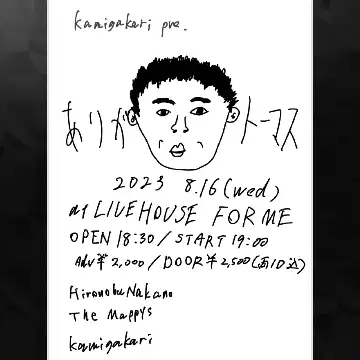 kamigakari pre.
ありが トーマス
2023 8.16 (wed)
at LIVEHOUSE FOR ME
OPEN 18:30 / START 19:00
Adv ¥ 2,000 / DOOR ¥ 2,500 (両1D込)
Hironobu Nakano
The Mappys
kamigakari